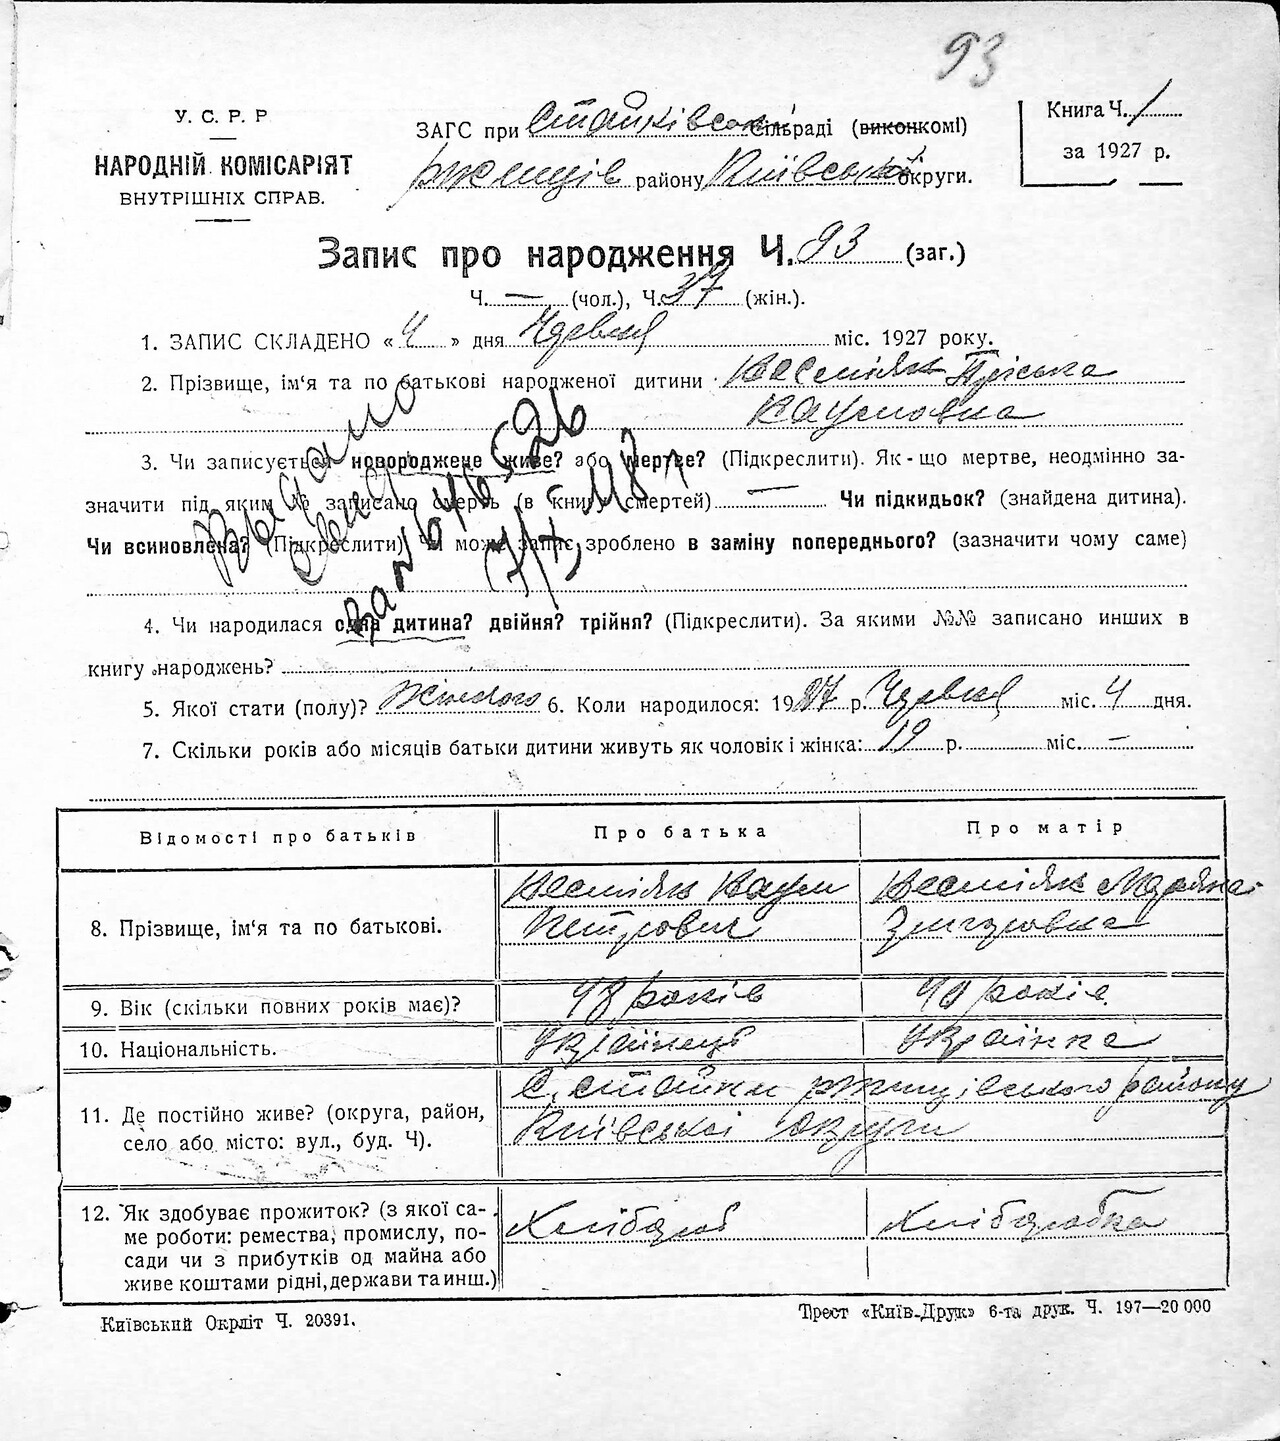 93
У. С. Р. Р
НАРОДНІЙ КОМІСАРІЯТ
ВНУТРІШНІХ СПРАВ.
ЗАГС при Стайківськ сільраді (виконкомі)
Ржищів району Київської округи.
Книга Ч. 1
за 1927 р.
Запис про народження Ч. 93 (заг.)
Ч. — (чол.), Ч. 37 (жін.).
1. ЗАПИС СКЛАДЕНО «4» дня міс. 1927 року.
2. Прізвище, ім'я та по батькові народженої дитини Пріська
Наумовна
3. Чи записується новороджене живе? або мертве? (Підкреслити). Як-що мертве, неодмінно за-
значити під яким № записано смерть (в книгу смертей) — Чи підкидьок? (знайдена дитина).
Чи всиновлена? (Підкреслити) Чи може запис зроблено в заміну попереднього? (зазначити чому саме)
Выдано
4. Чи народилася одна дитина? двійня? трійня? (Підкреслити). За якими №№ записано инших в
книгу народжень?
5. Якої стати (полу)? Жіночого 6. Коли народилося: 1927 р. міс. 4 дня.
7. Скільки років або місяців батьки дитини живуть як чоловік і жінка: 19 р. міс. —
Відомості про батьків
Про батька
Про матір
8. Прізвище, ім'я та по батькові.
Наум
Петрович
9. Вік (скільки повних років має)?
48 років
40 років
10. Національність.
Українець
Українка
11. Де постійно живе? (округа, район,
село або місто: вул., буд. Ч).
С. Стайки Ржищівського району
Київської округи
12. Як здобуває прожиток? (з якої са-
ме роботи: ремества, промислу, по-
сади чи з прибутків од майна або
живе коштами рідні, держави та инш.)
Хлібороб
Хліборобка
Київський Окрліт Ч. 20391.
Трест «Київ-Друк» 6-та друк. Ч. 197—20 000